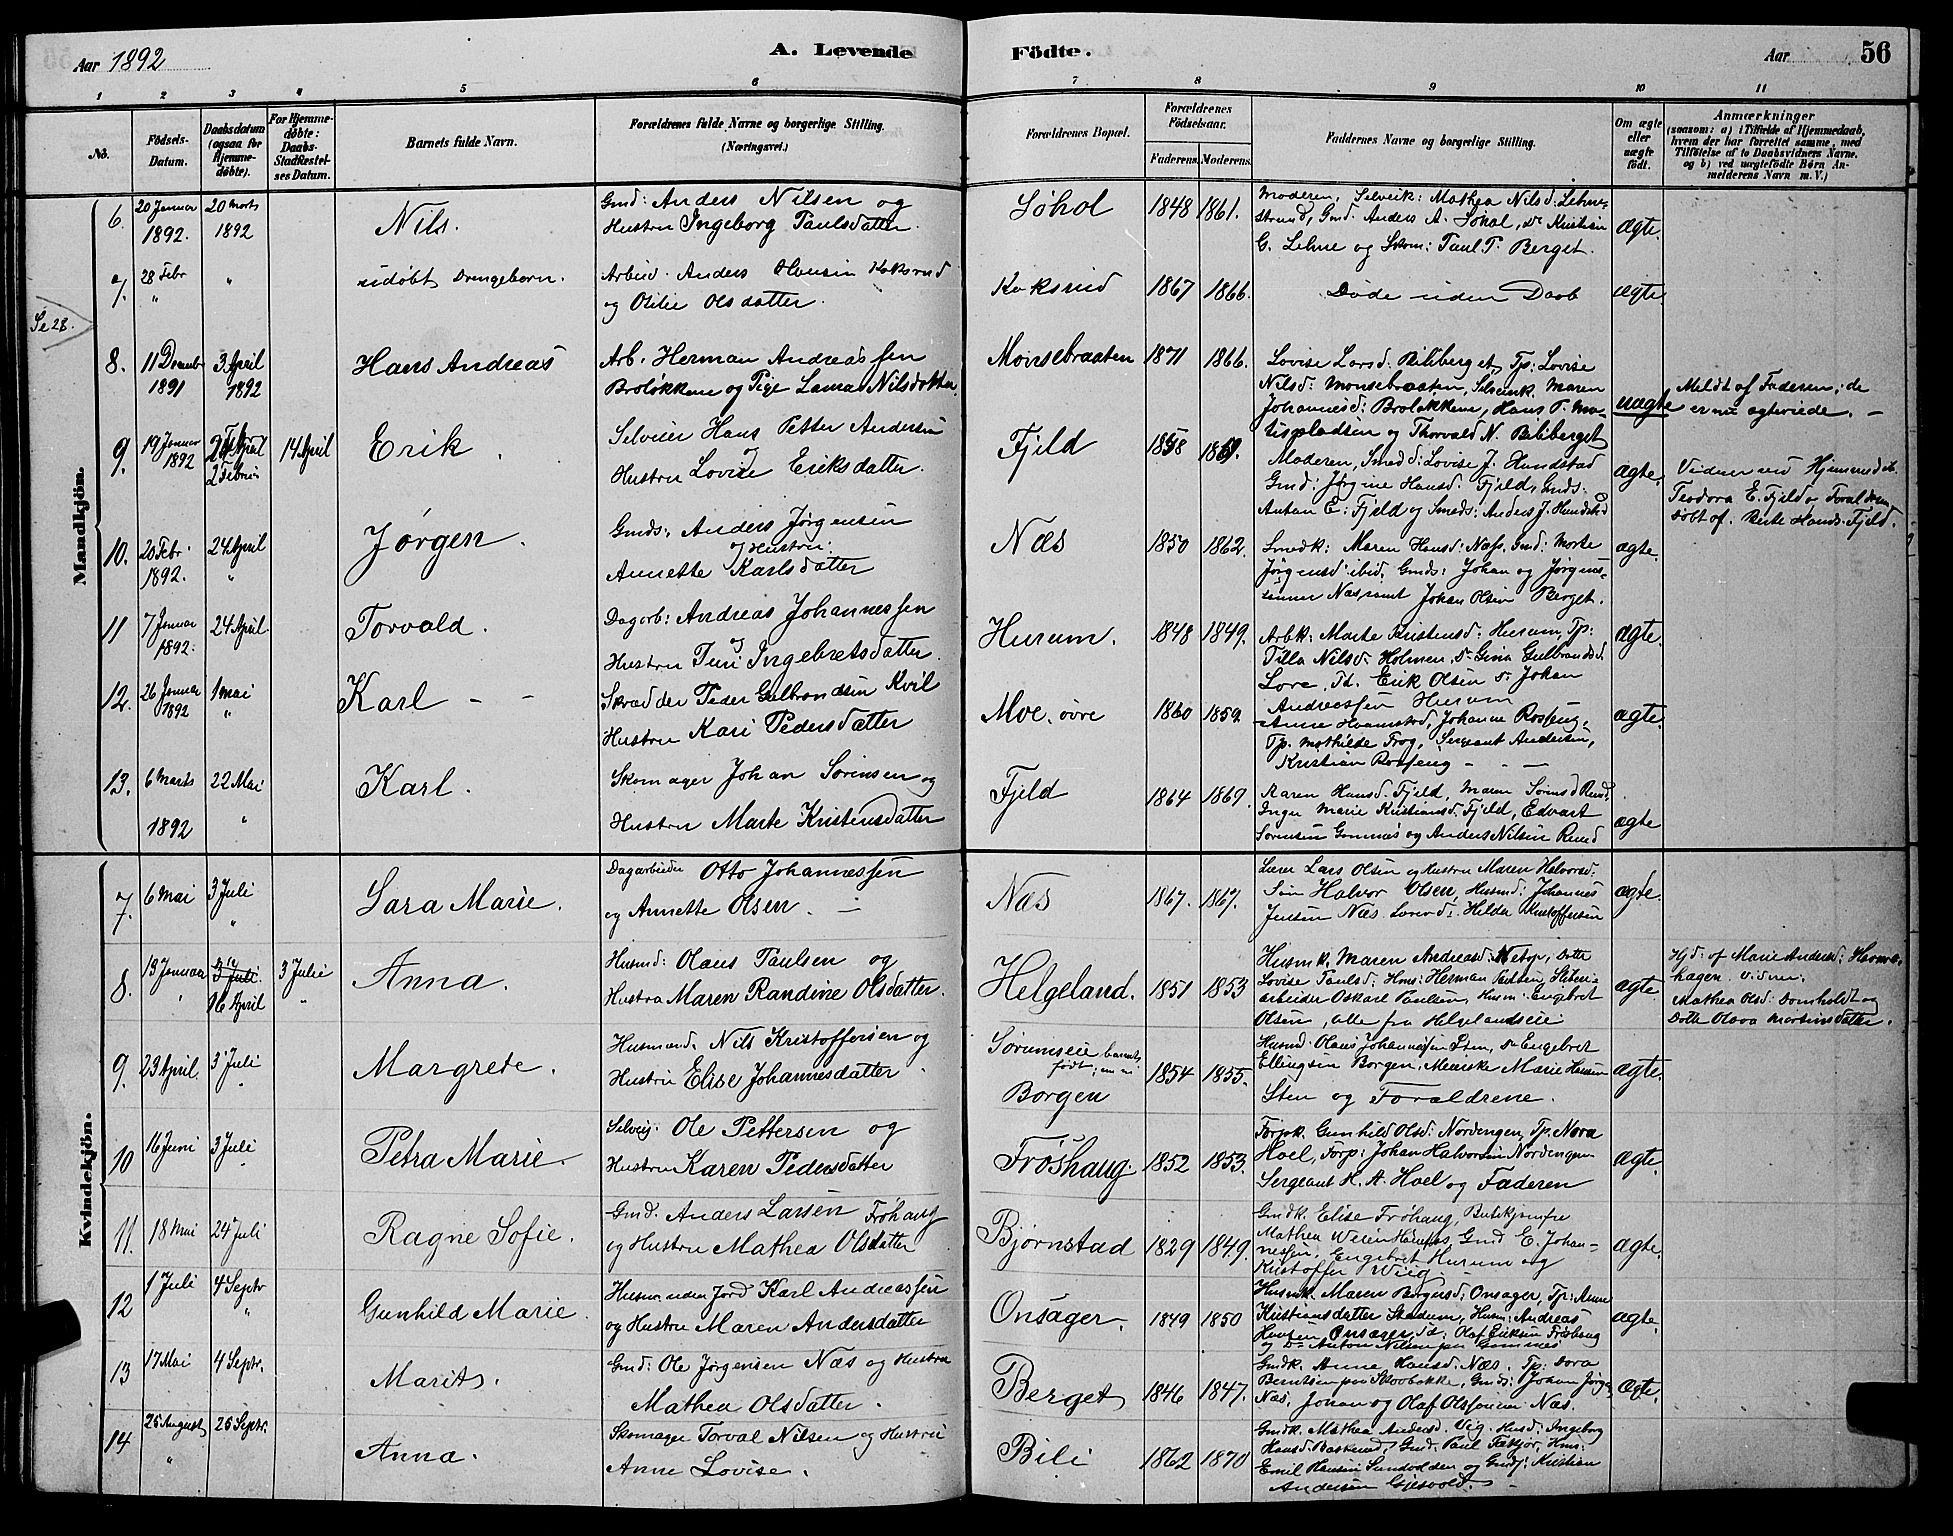 Aar 1892
A. Levende
Födte.
Aar
56
1 2 3 4 5 6 7 8 9 10 11
No.
Födsels-Datum.
Daabsdatum (ogsaa for Hjemmedøbte).
For Hjemmedøbte: Daabs-Stadfæstelses Datum.
Barnets fulde Navn.
Forældrenes fulde Navne og borgerlige Stilling. (Næringsvei.)
Forældrenes Bopæl.
Forældrenes Födselsaar.
Faderens. Moderens.
Faddernes Navne og borgerlige Stilling.
Om ægte eller uægte født.
Anmærkninger (saasom: a) i Tilfælde af Hjemmedaab, hvem der har forrettet samme, med Tilføielse af to Daabsvidners Navne, og b) ved uægtefødte Børn Anmelderens Navn m. V.)
Mandkjön.
6. 20 Januar 1892. 20 Marts 1892
Nils.
Gmd: Anders Nilsen og
Hustru Ingeborg Paulsdatter.
Søhol 1848 1861.
Moderen, Selveik: Mathea Nilsd: Lehne-
strand, Gmd: Anders A. Søhol, do Kristian
G. Lehne og Skom: Paul P. Berget.
ægte.
7. 28 Febr "
udøbt Drengebarn.
Arbeid. Anders Hansen Koksrud
og Otilie Olsdatter.
Koksrud 1867 1866.
Døde uden Daab
ægte
Se 28.
8. 11 Decembr 1891 3 April 1892
Hans Andreas
Arb. Herman Andreassen
Broløkken og Pige Laura Nilsdatter
Monsebraaten 1871 1866.
Lovise Larsd. Biliberget, Tp: Lovise
Nilsd: Monsebraaten, Selveiek. Maren
Johannesd: Broløkken, Hans P. Mo-
tispladsen og Thorvald N. Biliberget
uægte
Meldt af Faderen; de
er nu ægteviede. –
9. 19 Januar 1892 2 Februar 14 April
Erik.
Selveier Hans Petter Andersen
og
Hustru Lovise Eriksdatter.
Fjeld 1858
Moderen, Smedd: Lovise J. Hundstad
Gmd: Jørgine Hansd. Fjeld, Gmds:
Anton E. Fjeld og Smeds: Anders J. Hundstad
ægte.
Vidner ved Hjemmed.
Teodora E. Fjeld og Forældrene
Døbt af. Berte Hansd. Fjeld.
10. 20 Febr: 1892. 24 April "
Jørgen.
Gmds: Anders Jørgensen
og Hustru:
Annette Karlsdatter
Næs 1850 1862.
Smedk: Maren Hansd: Næss, Gmd: Marte
Jørgensd: ibid, Gmds: Johan og Jørgens-
sønner Næs samt Johan Olsen Berget.
ægte.
11 7 Januar 1892. 24 April
Torvald.
Dagarb: Andreas Johannessen
og
Hustru Turi Ingebretsdatter.
Hurum. 1848 1849.
Arbk: Marte Kristensd: Hurum, Tp:
Tilla Nilsd: Holmen, do Gina Gulbrandsd.
Lore, Td. Erik Olsen do Johan
Andreassen Hurum
ægte.
12. 26 Januar 1892 1 Mai "
Karl – –
Skrædder Peder Gulbrandsen Kvil
Hustru Kari Pedersdatter
Moe øvre 1860 1859.
Anne Hvamstad, Johanne Rosseng,
Tp. Mathilde Frog, Sergeant Andersen,
Kristian Rosseng – – –
ægte.
13. 6 Marts 1892 22 Mai "
Karl.
Skomager Johan Sørensen og
Hustru Marte Kristensdatter
Fjeld 1864 1869.
Karen Hansd. Fjeld, Maren Sørensd Rud,
Inger Marie Kristiansd. Fjeld, Edvart
Sørensen Gomnæs og Anders Nilsen Rud
ægte
Kvindekjön.
7. 6 Mai 3 Juli "
Sara Marie.
Dagarbeider Otto Johannessen
og Annette Olsen. –
Næs 1867. 1867.
Lærer Lars Olsen og Hustru Maren Halvorsd.
Søn Halvor Olsen, Husmd: Johannes
Jensen Næs. Hilda Kristoffersen
ægte.
8. 19 Januar " 16 April 3 Juli "
Anna.
Husmd: Olaus Paulsen og
Hustru Maren Randine Olsdatter.
Helgeland. 1851 1853
Husmk. Maren Andreasd: Netop, Dattr
Lovise Paulsd: Hms: Herman Paulsen, Sliberi-
arbeider Oskarl Paulsen, Husm: Engebret
Olsen, alle fra Helgelandseie
ægte.
Hjd: af Marie Andersd: Hovns-
hagen. Vidner:
Mathea Olsd: Domholdt og
Dattr Olava Martinsdatter.
9. 29 April. 3 Juli "
Margrete.
Husmand. Nils Kristoffersen og
Hustru Elise Johannesdatter.
Sørumseie barnets
født; nu
Borgen 1854 1855.
Husmd. Olaus Johannessen Sten, do Engebret
Ellingsen Borgen, Meierske Marie Hansen
Sten og Forældrene.
ægte.
10 16 Juni 3 Juli "
Petra Marie.
Selvej. Ole Pettersen og
Hustru Karen Pedersdatter
Frøshaug. 1852 1853.
Forpk. Gunhild Olsd: Nordengen, Tp. Nora
Hoel, Forp: Johan Halvorsen Nordengen
Sergeant H. A. Hoel og Faderen
ægte.
11. 18 Mai 24 Juli
Ragne Sofie.
Gmd. Anders Larsen Frøhaug
og Hustru Mathea Olsdatter
Bjørnstad 1829 1849.
Gmdk: Elise Frøhaug, Butikjomfru
Mathea Weien Hønefos, Gmd E. Johan-
nessen, Engebret Hurum og
Kristoffer Wiig.
ægte.
12 1 Juli 4 Septr "
Gunhild Marie.
Husm. uden Jord Karl Andreassen
og Hustru Maren Andersdatter
Onsager. 1849 1850
Husmk. Maren Borgersd: Onsager, Tp: Anne
Kristiansdatter Stadum, Husm: Andreas
Hansen Onsager, Td: Olaf Eriksen Frøhaug
og Do Anton Nilsen paa Gomnes
ægte.
13 17 Mai 4 Septr.
Marits.
Gmd: Ole Jørgensen Næs og Hustru
Mathea Olsdatter.
Berget 1846 1847.
Gmdk. Anne Hansd. Næs. Tp: Dora
Berntsen paa Skovbakke, Gmds: Johan Jørg.
Næs, Johan og Olaf Olssønner Næs.
ægte.
14 25 August " 25 Septr.
Anna.
Skomager Torval Nilsen og Hustru
Anne Lovise.
Bili 1862 1870
Gmdk. Mathea Andersd. Vig. Husd: Ingeborg
Hansd. Gmd. Paul Hms:
Emil Hansen Sundvolden og Gmdj: Kristian
Andersen Gjesvold. –